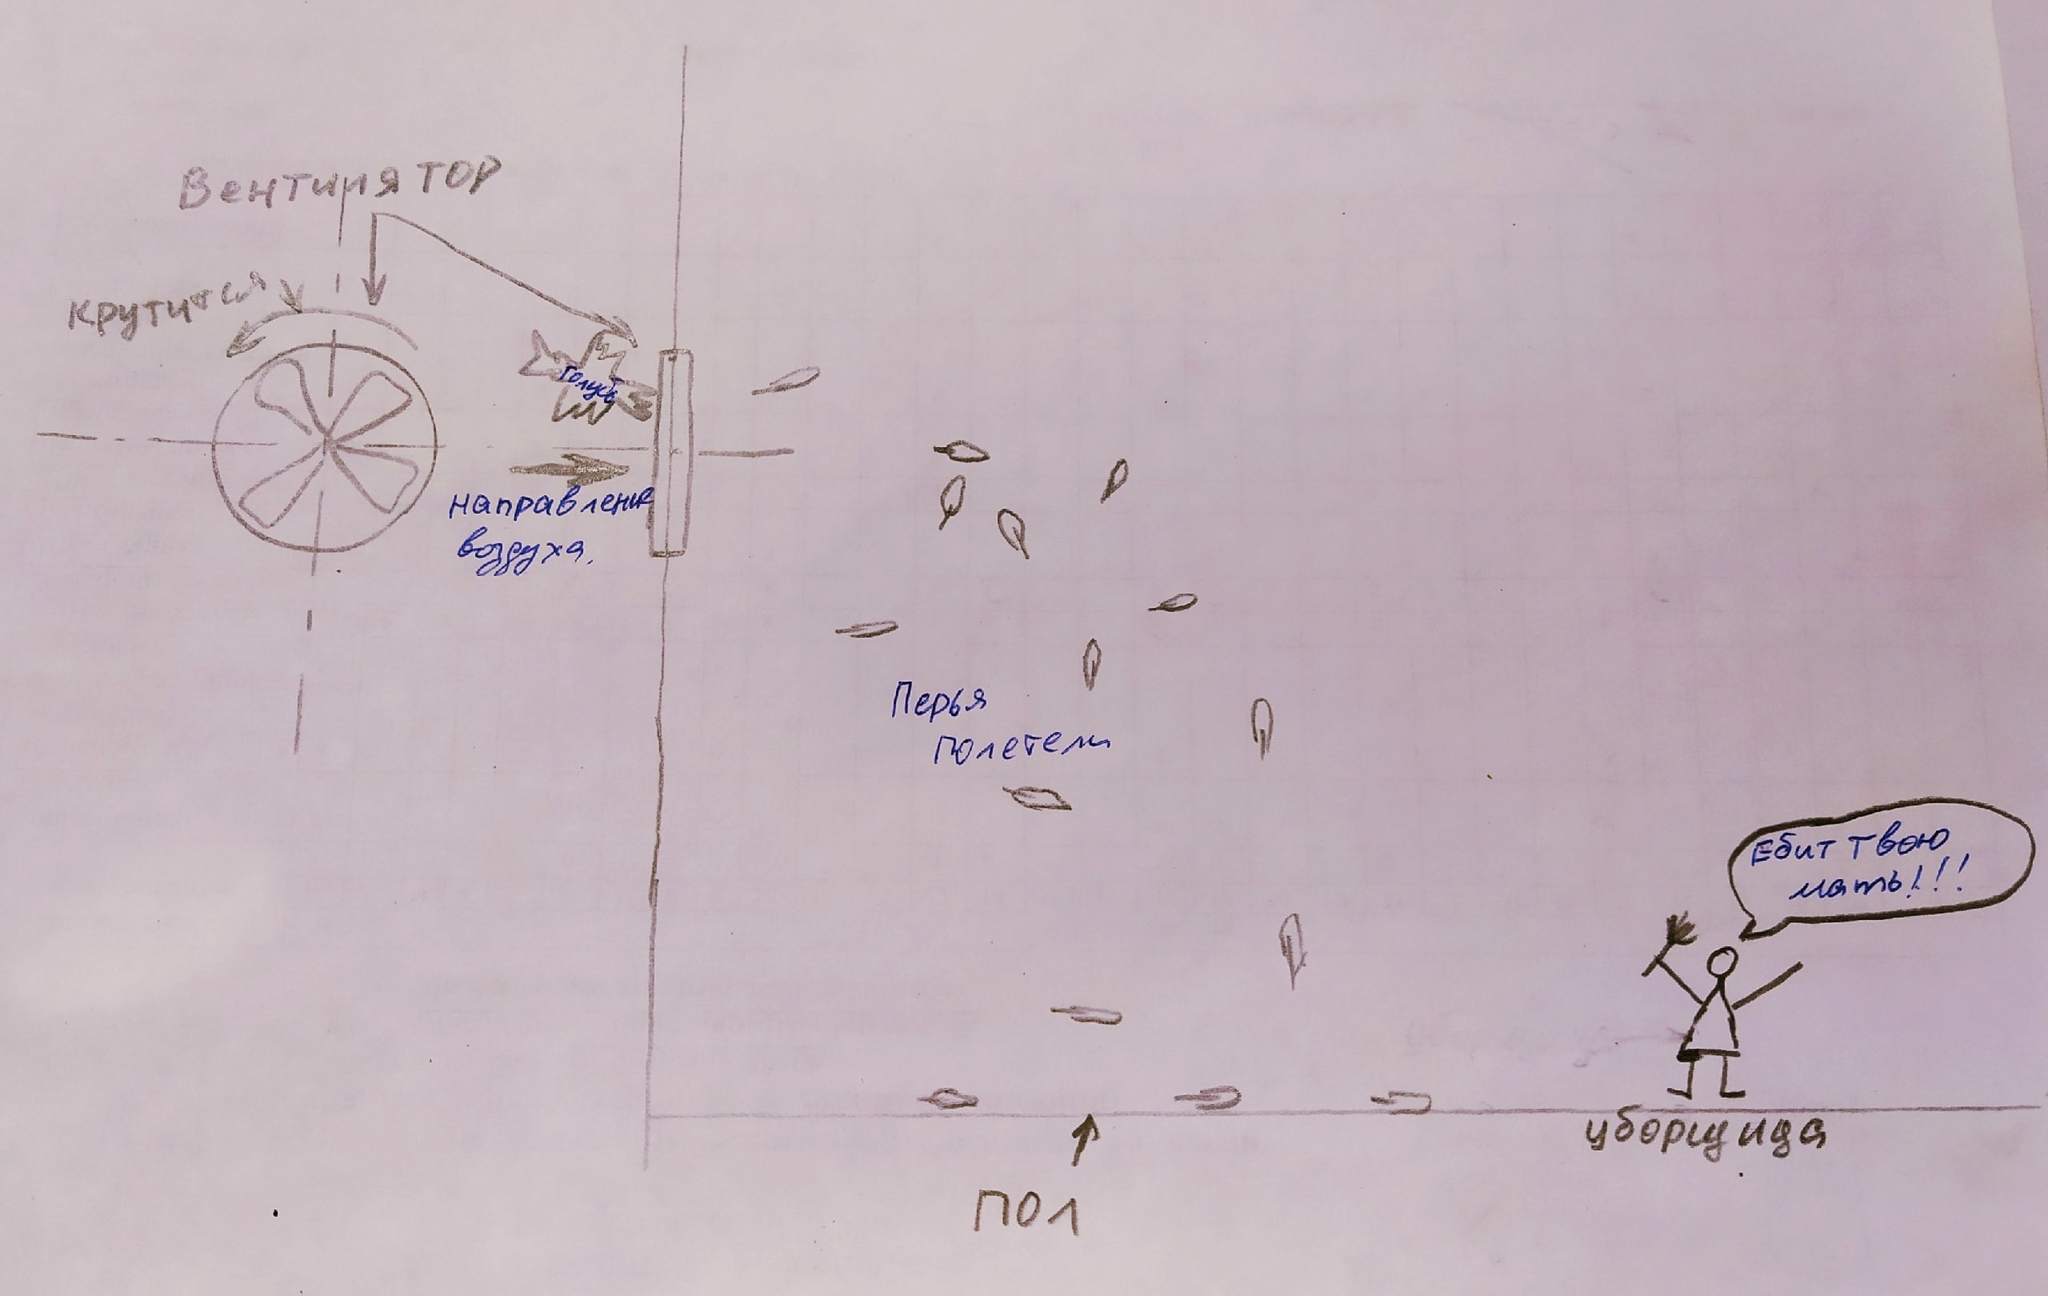 Вентилятор
крутится
голубь
направление
воздуха.
Перья
полетели
Ебит твою
мать!!!
уборщица
пол